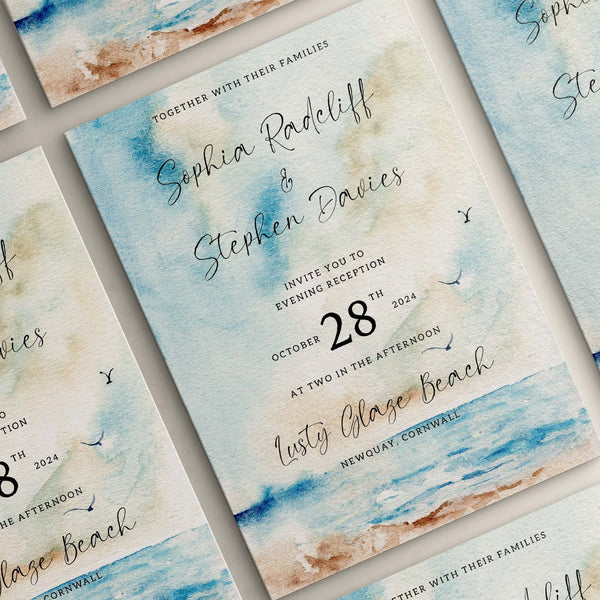 TOGETHER WITH THEIR FAMILIES
Sophia Radcliff
&
Stephen Davies
INVITE YOU TO
EVENING RECEPTION
OCTOBER 28TH 2024
AT TWO IN THE AFTERNOON
Lusty Glaze Beach
NEWQUAY, CORNWALL
Radcliff
Davies
YOU TO
RECEPTION
28 2024
IN THE AFTERNOON
Glaze Beach
CORNWALL
Sophia
Stephen
TOGETHER WITH THEIR FAMILIES
Radcliff